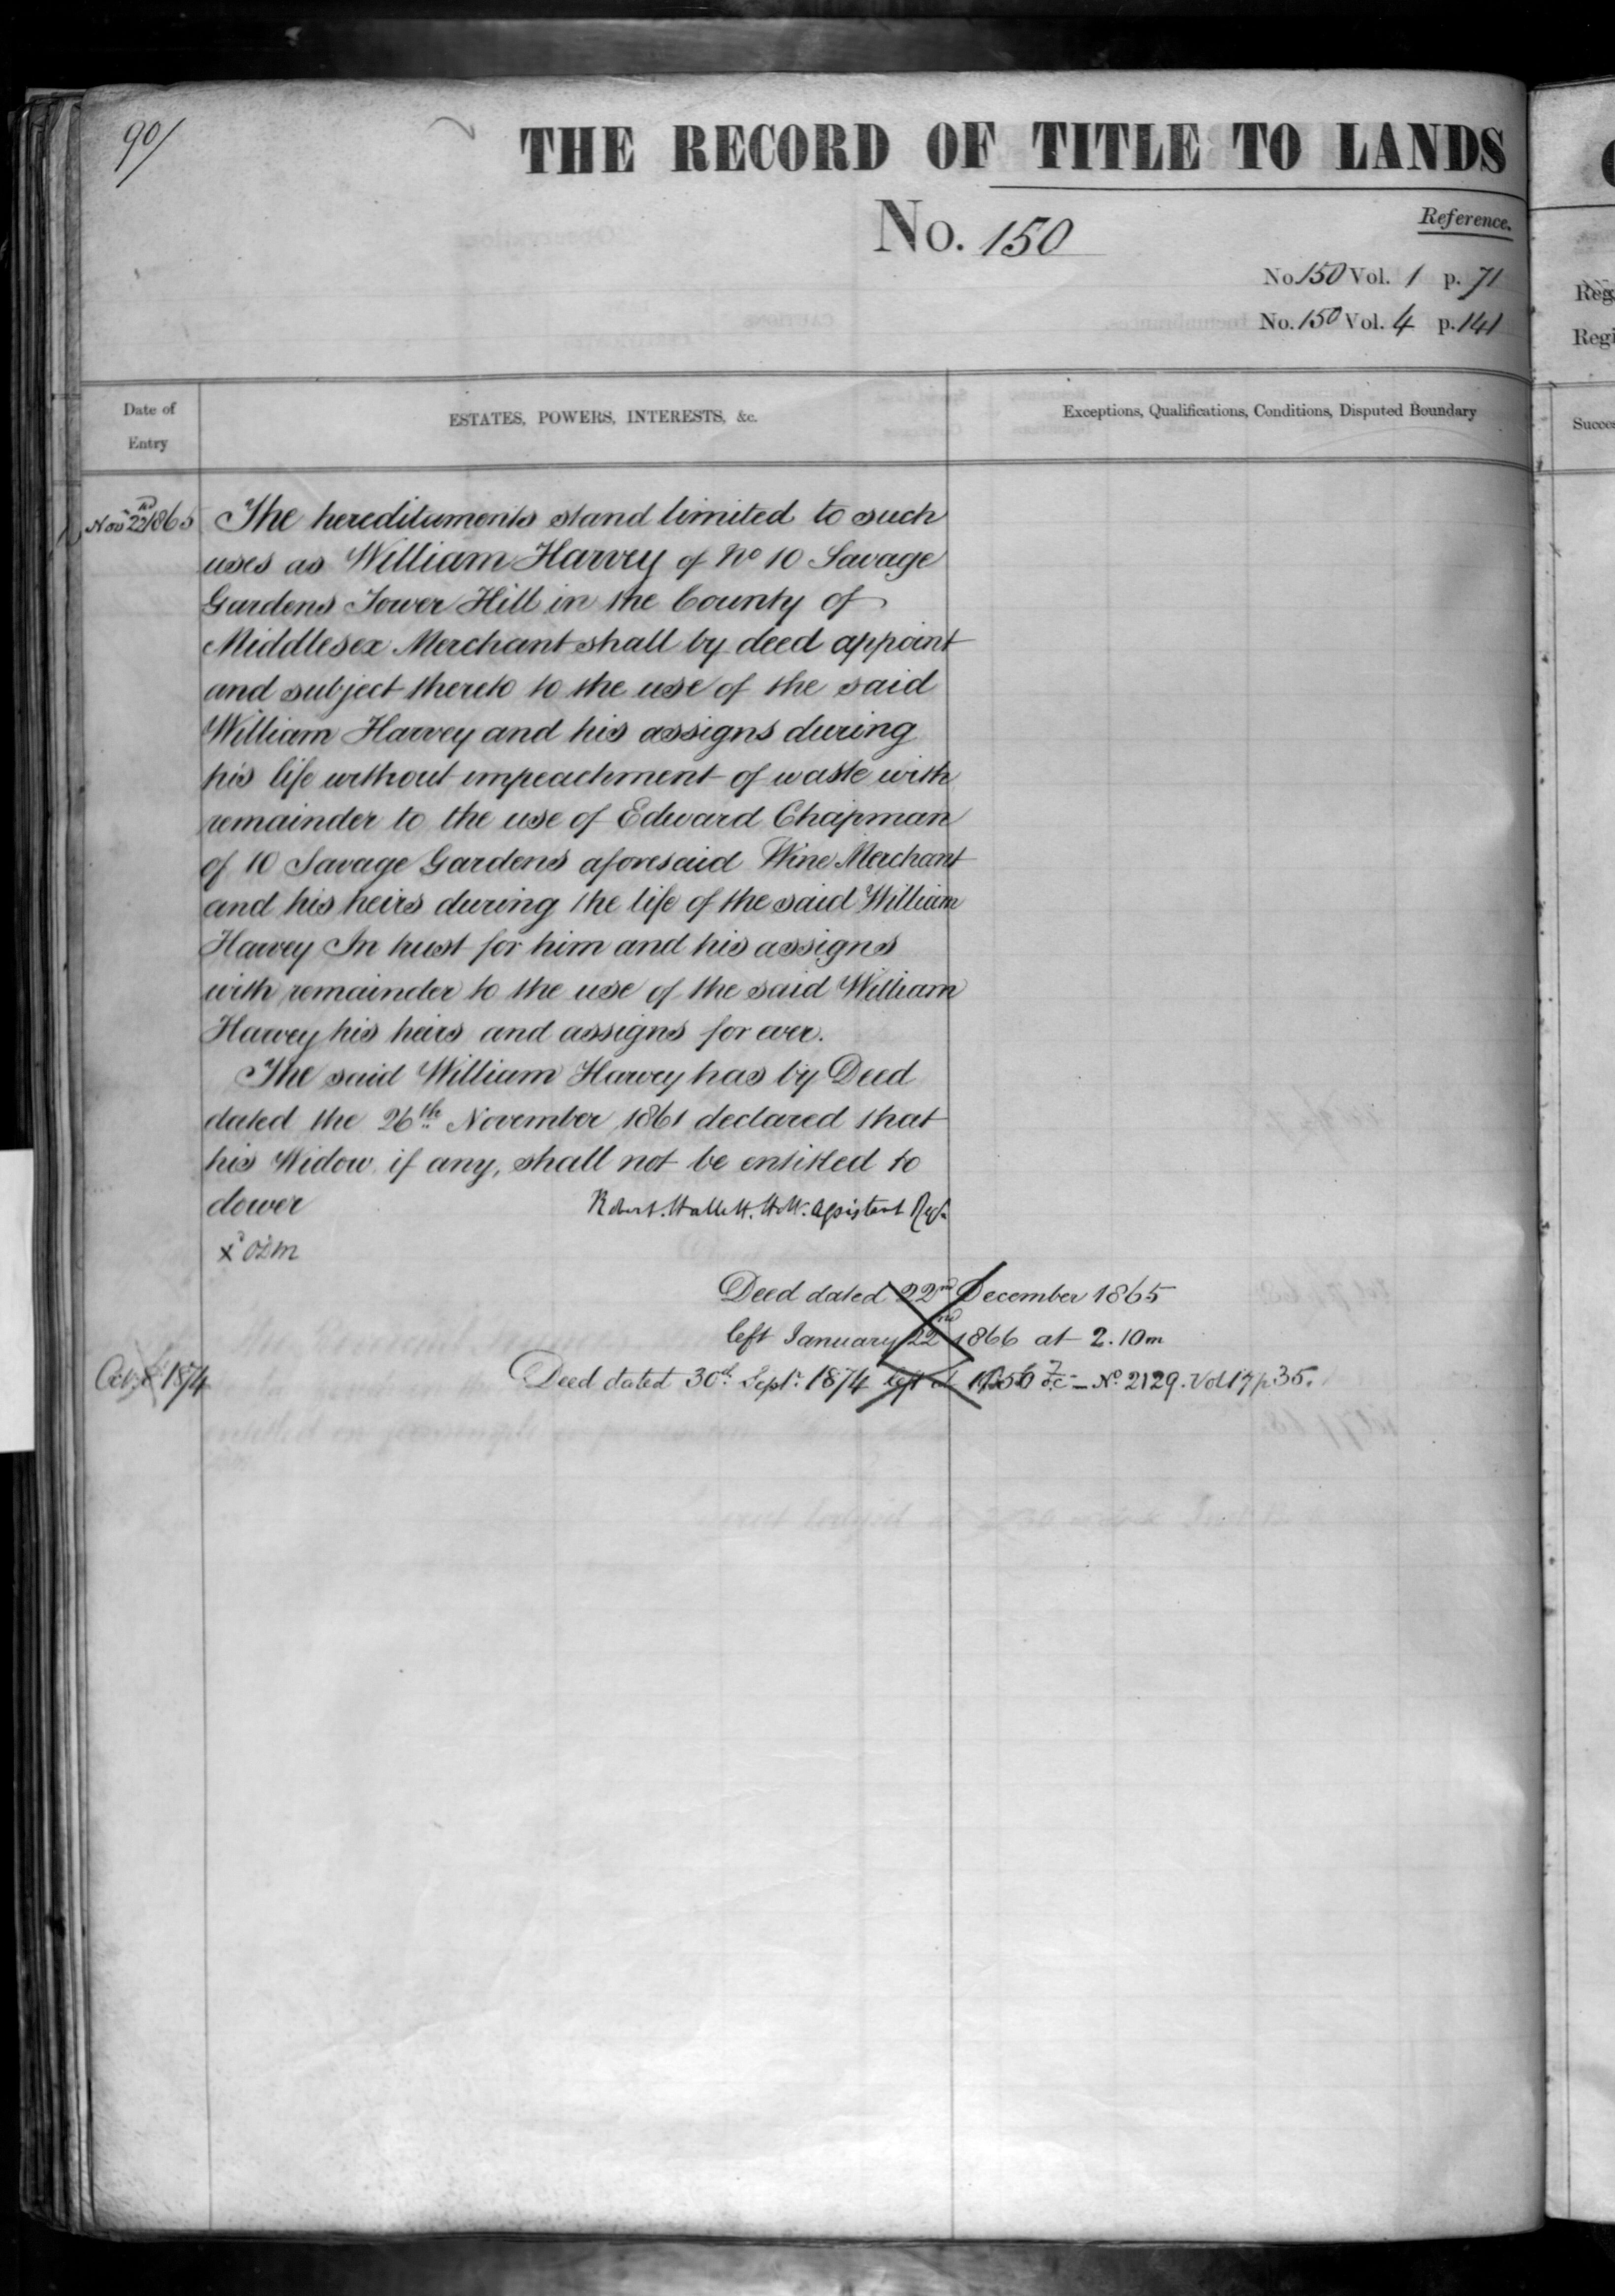 90/
THE RECORD OF TITLE TO LANDS
No. 150
Reference.
No 150 Vol. 1 p. 71
No. 150 Vol. 4 p. 141
Date of Entry
ESTATES, POWERS, INTERESTS, &c.
Exceptions, Qualifications, Conditions, Disputed Boundary
Novr 22nd 1865
The hereditaments stand limited to such
uses as William Harvey of No 10 Savage
Gardens Tower Hill in the County of
Middlesex Merchant shall by deed appoint
and subject thereto to the use of the said
William Harvey and his assigns during
his life without impeachment of waste with
remainder to the use of Edward Chapman
of 10 Savage Gardens aforesaid Wine Merchant
and his heirs during the life of the said William
Harvey In trust for him and his assigns
with remainder to the use of the said William
Harvey his heirs and assigns for ever.
The said William Harvey has by Deed
dated the 26th November 1861 declared that
his Widow if any, shall not be entitled to
dower
Robert Hallett Holt. Assistant Regr
Deed dated 22nd December 1865
left January 22nd 1866 at 2.10m
Oct 1874
Deed dated 30th Septr 1874 left at No. 2129. Vol 17 p 35.
Reg
Regi
Succes